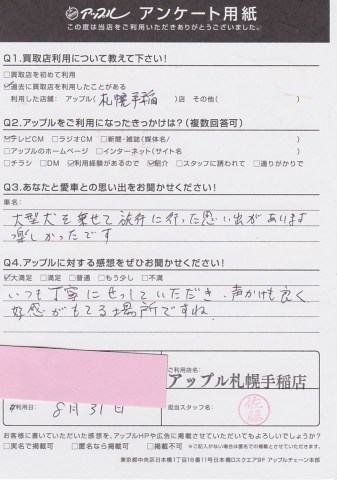 アップル アンケート用紙
この度は当店をご利用いただきありがとうございました。
Q1.買取店利用について教えて下さい!
□買取店を初めて利用
☑過去に買取店を利用したことがある
利用した店舗: アップル(札幌手稲)店 その他( )
Q2.アップルをご利用になったきっかけは?(複数回答可)
☑テレビCM □ラジオCM □新聞・雑誌(媒体名/ )
□アップルのホームページ □インターネット(サイト名 )
□チラシ □DM ☑利用経験があるので ☑紹介 □スタッフに誘われて □通りがかりで
Q3.あなたと愛車との思い出をお聞かせください!
車名:
大型犬を乗せて旅行に行った思い出があります
楽しかったです
Q4.アップルに対する感想をぜひお聞かせください!
☑大満足 □満足 □普通 □もう少し □不満
いつも丁寧にせっしていただき、声かけも良く
好感がもてる場所ですね
ご利用店名:
アップル札幌手稲店
ご利用日: 8月31日
担当スタッフ名: 佐藤
お客様に書いていただいた感想を、アップルHPや広告に掲載させていただいてもよろしいでしょうか?
□実名で掲載可 □匿名なら掲載可 □掲載不可 ※ご記入がない場合は匿名での掲載とさせていただきます。
東京都中央区日本橋1丁目16番11号日本橋Dスクエア9F アップルチェーン本部